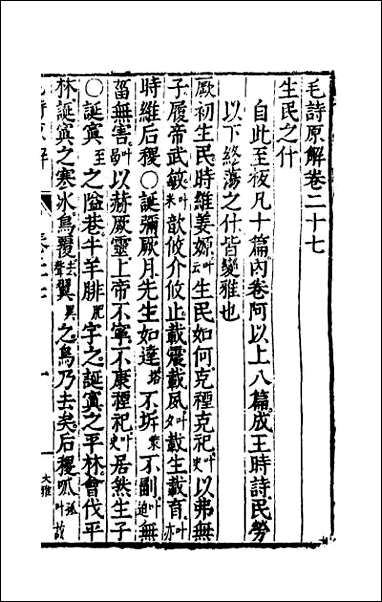 毛詩原解卷二十七
生民之什
自此至板凡十篇內卷阿以上八篇成王時詩民勞
以下終蕩之什皆變雅也
厥初生民時維姜嫄叶云生民如何克禋克祀叶史以弗無
子履帝武敏叶米歆攸介攸止載震載夙叶載生載育叶亦
時維后稷○誕彌厥月先生如達塔不坼策不副迫無
菑無害叶曷以赫厥靈上帝不寧不康禋祀叶史居然生子
○誕寘至之隘巷牛羊腓肥字之誕寘之平林會伐平
林誕寘之寒冰鳥覆去聲翼異之鳥乃去矣后稷呱孤叶故
大雅